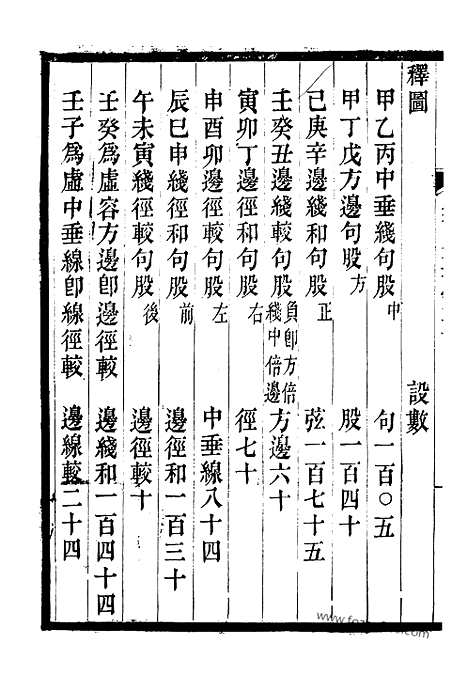 釋圖 設數
甲乙丙中垂綫句股 中 句一百〇五
甲丁戊方邊句股 方 股一百四十
己庚辛邊綫和句股 正 弦一百七十五
壬癸丑邊綫較句股 負卽方倍綫中倍邊 方邊六十
寅卯丁邊徑和句股 右 徑七十
申酉卯邊徑較句股 左 中垂線八十四
辰巳申綫徑和句股 前 邊徑和一百三十
午未寅綫徑較句股 後 邊徑較十
壬癸爲虛容方邊卽邊徑較 邊綫和一百四十四
壬子爲虛中垂線卽線徑較 邊線較二十四